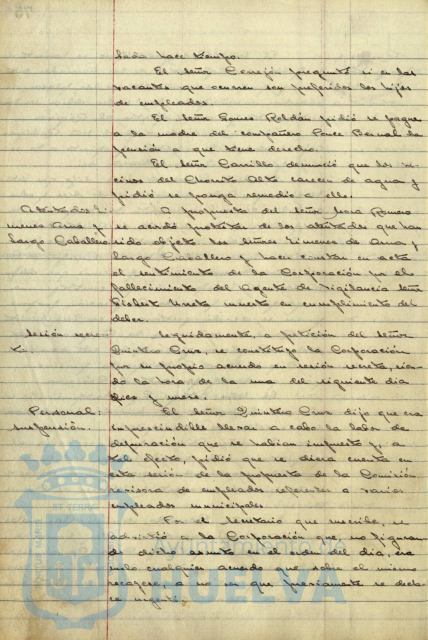 tada hace tiempo.
El señor Cerrejón preguntó si en las
vacantes que ocurren son preferidos los hijos
de empleados.
El señor Gómez Roldán pidió se pague
a la madre del compañero Ponce Bernal la
pensión a que tiene derecho.
El señor Carrillo denunció que los ve-
cinos del Chorrito Alto carecen de agua y
pidió se ponga remedio a ello.
Atentados Ji-
menez Asua y
Largo Caballero.
A propuesta del señor Mora Romero
se acordó protestar de los atentados que han
sido objeto los señores Jimenez de Asua y
Largo Caballero y hacer constar en acta
el sentimiento de la Corporación por el
fallecimiento del Agente de Vigilancia señor
Gisbert Urreta muerto en cumplimiento del
deber.
Sesión secre-
ta.
Seguidamente, a petición del señor
Quintero Cruz, se constituyó la Corporación
por su propio acuerdo en sesión secreta, sien-
do la hora de la una del siguiente dia
diez y nueve.
Personal:
suspensión.
El señor Quintero Cruz dijo que era
imprescindible llevar a cabo la labor de
depuración que se habian impuesto y, a
tal efecto, pidió que se diera cuenta en
esta sesión de la propuesta de la Comisión
revisora de empleados referentes a varios
empleados municipales.
Por el secretario que suscribe, se
advirtió a la Corporación que, no figuran-
do dicho asunto en el orden del dia, era
nulo cualquier acuerdo que sobre el mismo
recayese, a no ser que previamente se decla-
re urgente,
HUELVA